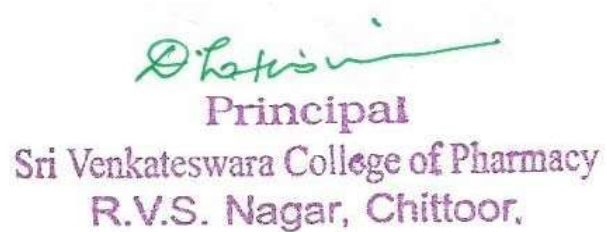 Principal
Sri Venkateswara College of Pharmacy
R.V.S. Nagar, Chittoor.